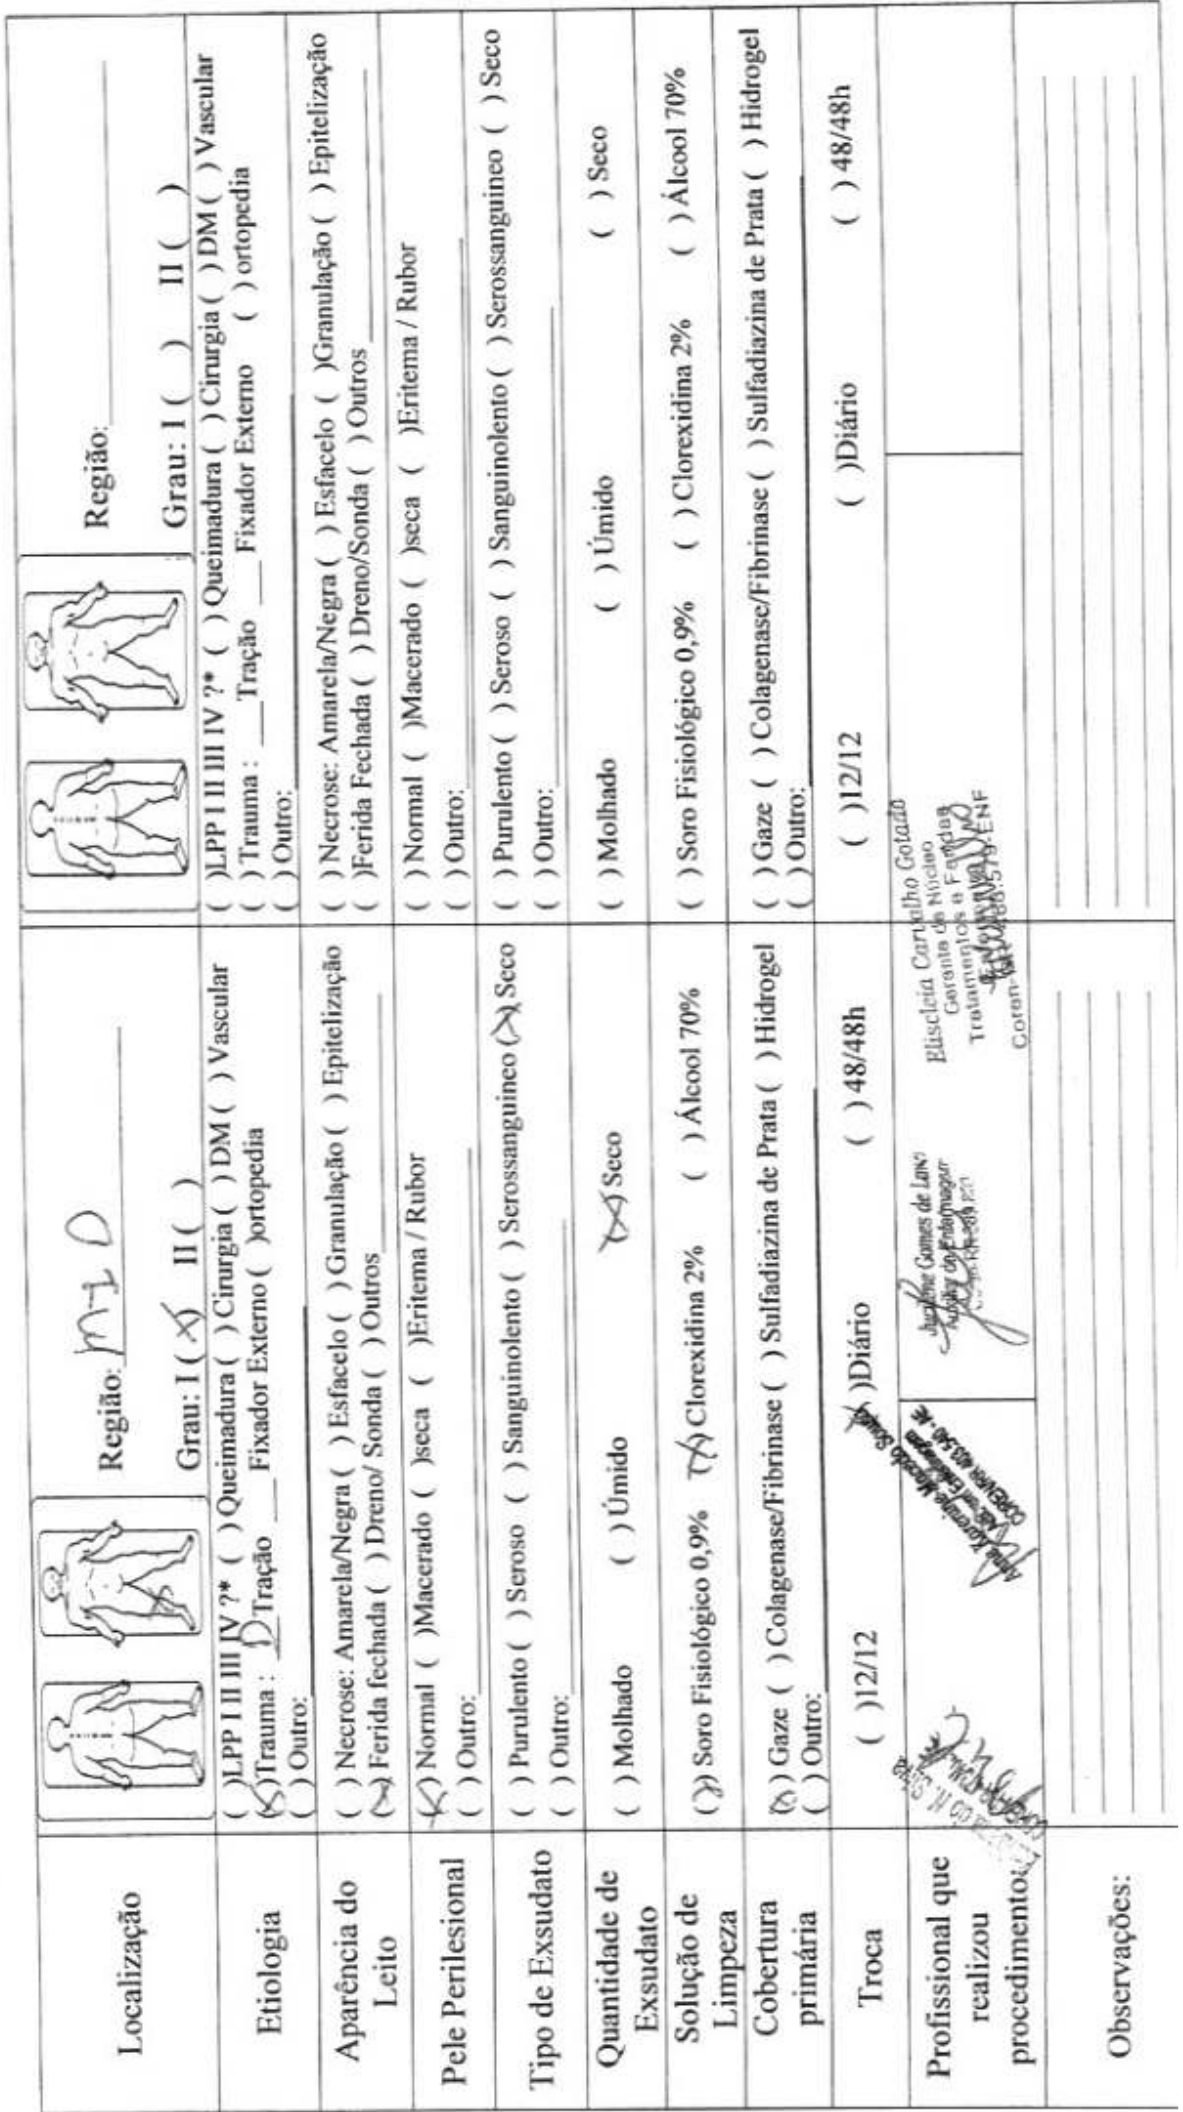 Localização
Região: MID
Grau: I ( X ) II ( )
Região:
Grau: I ( ) II ( )
Etiologia
( )LPP I II III IV ?* ( ) Queimadura ( ) Cirurgia ( ) DM ( ) Vascular
(X)Trauma : D Tração ___ Fixador Externo ( )ortopedia
( ) Outro:
( )LPP I II III IV ?* ( ) Queimadura ( ) Cirurgia ( ) DM ( ) Vascular
( ) Trauma : ___Tração ___ Fixador Externo ( ) ortopedia
( ) Outro:
Aparência do
Leito
( ) Necrose: Amarela/Negra ( ) Esfacelo ( ) Granulação ( ) Epitelização
(X) Ferida fechada ( ) Dreno/ Sonda ( ) Outros
( ) Necrose: Amarela/Negra ( ) Esfacelo ( )Granulação ( ) Epitelização
( )Ferida Fechada ( ) Dreno/Sonda ( ) Outros
Pele Perilesional
(X) Normal ( )Macerado ( )seca ( )Eritema / Rubor
( ) Outro:
( ) Normal ( )Macerado ( )seca ( )Eritema / Rubor
( ) Outro:
Tipo de Exsudato
( ) Purulento ( ) Seroso ( ) Sanguinolento ( ) Serossanguineo (X) Seco
( ) Outro:
( ) Purulento ( ) Seroso ( ) Sanguinolento ( ) Serossanguineo ( ) Seco
( ) Outro:
Quantidade de
Exsudato
( ) Molhado ( ) Úmido (X) Seco
( ) Molhado ( ) Úmido ( ) Seco
Solução de
Limpeza
(X) Soro Fisiológico 0,9% (X) Clorexidina 2% ( ) Álcool 70%
( ) Soro Fisiológico 0,9% ( ) Clorexidina 2% ( ) Álcool 70%
Cobertura
primária
(X) Gaze ( ) Colagenase/Fibrinase ( ) Sulfadiazina de Prata ( ) Hidrogel
( ) Outro:
( ) Gaze ( ) Colagenase/Fibrinase ( ) Sulfadiazina de Prata ( ) Hidrogel
( ) Outro:
Troca
( )12/12 (X)Diário ( ) 48/48h
( )12/12 ( )Diário ( ) 48/48h
Profissional que
realizou
procedimento:
do N. Silva
Macedo Souza
Enfermagem
403.540 - AE
Gomes de
Auxiliar de Enfermagem
Eliscleia Carvalho Gotado
Gerente de Núcleo
Tratamentos e Feridas
Coren-
Observações: